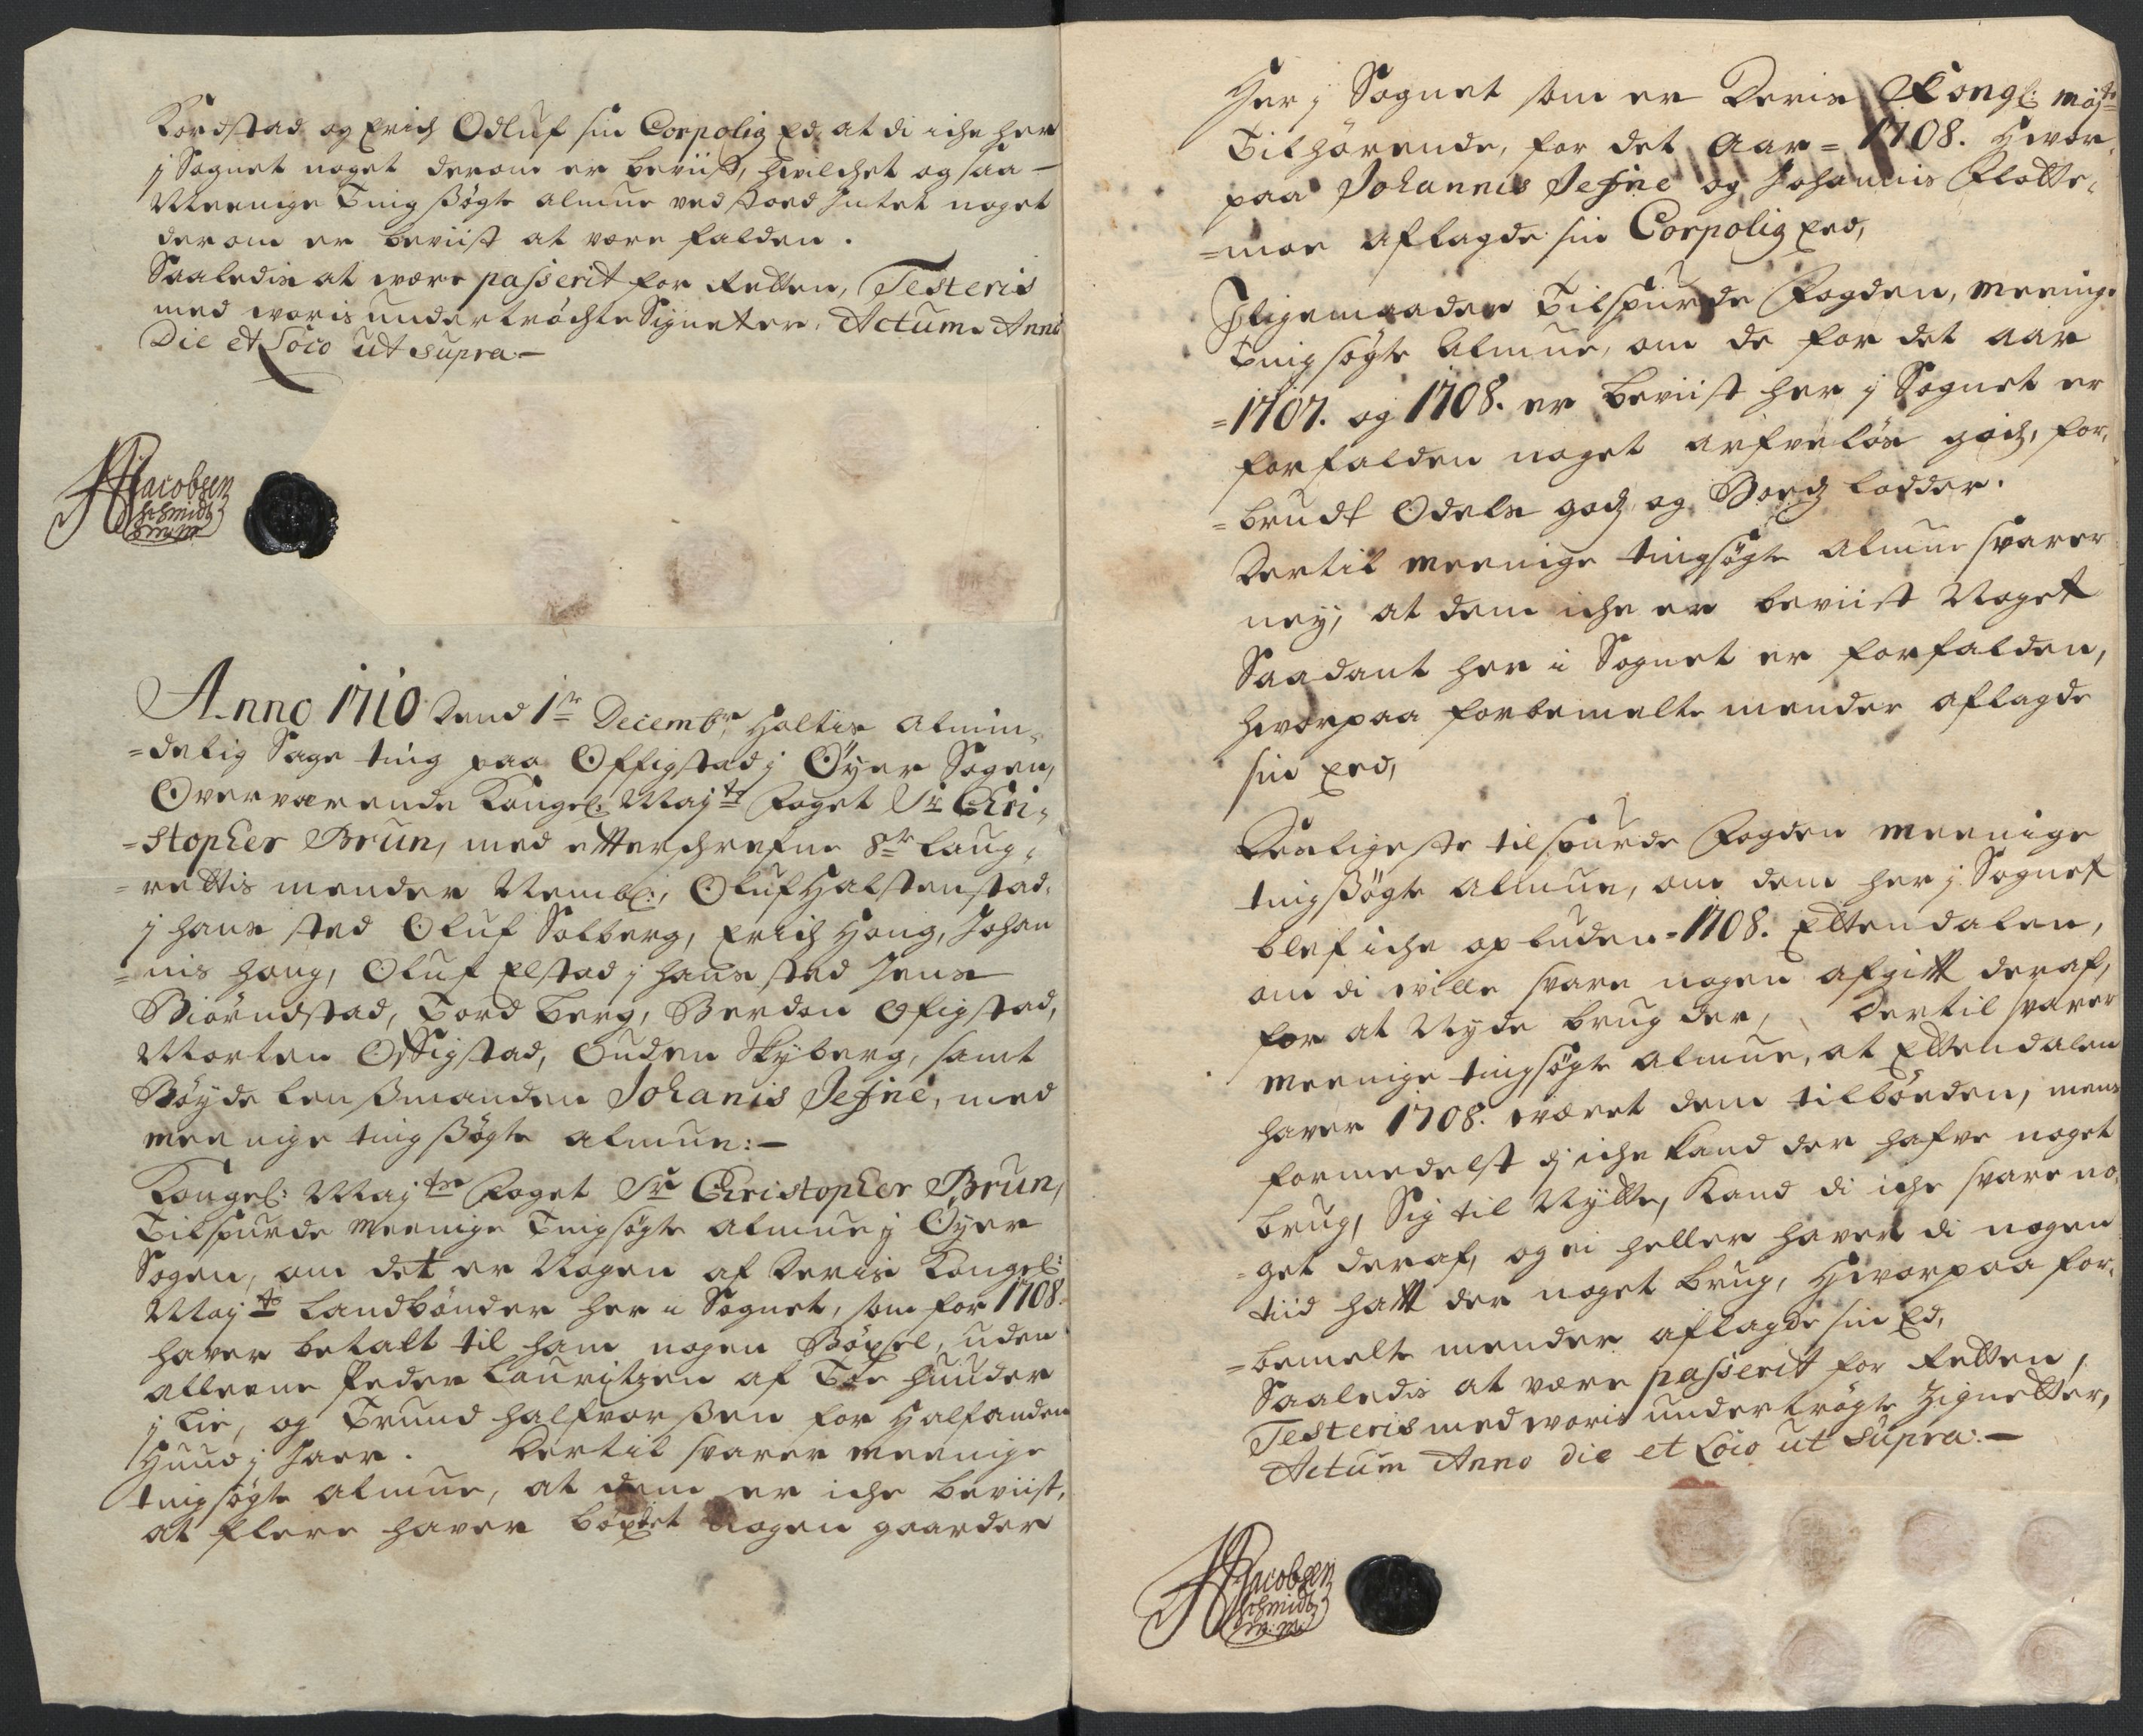 Kordstad og Erich Odluf sin Corpolig Ed at di iche her
j Sognet noget derom er beviist, hvilchet og saa
Meenige Tingsøgte almue ved stoed Intet noget
derom er beviist at være falden.
Saaledis at være passerit for Retten, Testeris
med woris undertröchte Signeter, Actum Anno
Die et Loco ut supra.—
Jacobsen
Schmidt
m.m.
Anno 1710 Dend 1te Decembr. Holtis almin-
=delig Sage ting paa Offigstad j Öyer Sogen,
Overværende Kongel: Mayts Foget Sr Chri-
=stopher Brun, med efterschrefne 8te Laug-
=rettis mender Nembl:, Oluf Halstenstad,
j hans sted Oluf Solberg, Erich Houg, Johan
=nis Houg, Oluf Elstad j hans sted Jens
Biörndstad, Tord Berg, Berdon Ofigstad,
Morten Offigstad, Ouden Skyberg, samt
Böyde Lensmanden Johanis Jefne, med
meenige tingsøgte almue:—
Kongel: Mayts Foget Sr Christopher Brun,
Tilspurde Meenige Tingsögte almue j Öyer
Sogen, om det er Nogen af Deris Kongel:
Mayts Landbönder her i Sognet, som for 1708.
haver betalt til ham nogen Böxel, uden
alleene Peder Lauritzen af Tte huuder
j Lie, og Trund Halfvorsen for Halfanden
Huud j Jaer. Dertil svarer meenige
tingsøgte almue, at dem er iche beviist,
at flere haver böxlet Nogen gaarder
Her j Sognet som er Deris Kongl: mayts
Tilhörende, for det Aar = 1708. Hvor-
paa Johannis Jefne og Johannis Flotte-
=moe aflagde sin Corpolig Eed,
Jligemaader Tilspurde Fogden, meenige
tingsøgte Almue, om de for det aar
=1707. og 1708. er beviist her j Sognet er
forfalden noget arfveløs godz, for-
=brudt Odels godz og Boeds lodder.
Dertil meenige tingsøgte almue svarer
ney, at dem iche er beviist Noget
Saadant her i Sognet er forfalden,
hvorpaa forbemelte mender aflagde
sin Eed,
Desligeste tilspurde Fogden meenige
tingsøgte almue, om dem her j Sognet
blef iche opbuden = 1708. Ettendalen,
om di ville svare nogen afgift deraf,
for at Nyde brug der, Dertil svarer
meenige tingsøgte almue, at Ettendalen
haver 1708. været dem tilböeden, mens
formedelst di iche kand der hafve noget
brug, Sig til Nytte, Kand di iche svare no-
=get deraf, og ei heller haver di nogen
tiid hatt der noget brug, Hvorpaa for-
=bemelte mender aflagde sin Ed,
Saaledis at være passerit for Retten,
Testeris med woris undertrögte Zignetter,
Actum Anno die et Loco ut supra.—
Jacobsen
Schmidt
m.m.